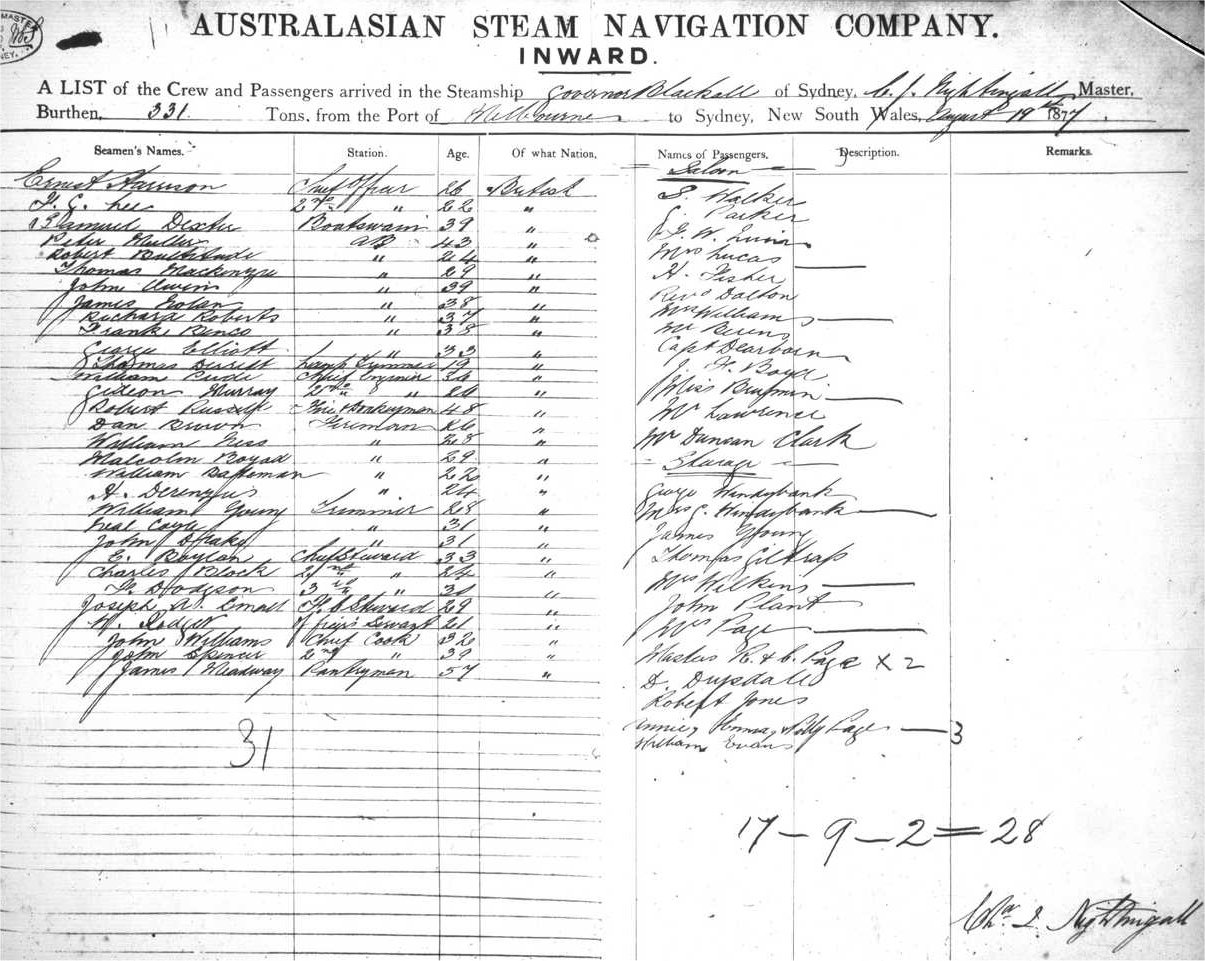 AUSTRALASIAN STEAM NAVIGATION COMPANY.
INWARD.
A LIST of the Crew and Passengers arrived in the Steamship Governor Blackall of Sydney, C. J. Nightingall, Master,
Burthen, 331 Tons, from the Port of Melbourne to Sydney, New South Wales, August 19th 1877
Seamen's Names. Station. Age. Of what Nation, Names of Passengers, Description. Remarks.
Saloon
Ernest Harrison Chief Officer 26 British
2nd " 22 "
Samuel Dexter Boatswain 39 "
Peter Muller AB 43 "
Robert " 24 "
Thomas Mackenzie " 29 "
John Owens " 39 "
James Nolan " 38 "
Richard Roberts " 37 "
Frank " 38 "
George Elliott " 33 "
Thomas Lamp Trimmer 19 "
William Chief Engineer "
Gideon Murray 2nd " "
Robert Russell 48 "
Dan Brown Fireman 26 "
William " 28 "
Malcolm " 29 "
William Bateman " 22 "
A. " 24 "
William Young Trimmer 28 "
Neal " 31 "
John Drake " 31 "
E. Boylan Chief Steward 33 "
Charles Block 2nd " 24 "
Dodgson 3rd " 31 "
Joseph Steward 29 "
Servant 21 "
John Williams Chief Cook 32 "
John Spencer 2nd " 39 "
James Meadway Pantryman 57 "
31
S. Walker
Parker
Mrs Lucas
A. Fisher
Revd Dalton
Williams
Mr
Capt Dearborn
J. F. Boyd
Miss
Mr Lawrence
Mr Duncan Clark
Steerage
George Windybank
Mrs G. Windybank
James Young
Thomas Giltrap
Mrs Wilkins
John Plant
Mrs Page
Masters R. & C. Page X 2
D. Drysdale
Robert Jones
Annie, Emma, & Polly Page — 3
William Evans
17 — 9 — 2 = 28
Nightingall